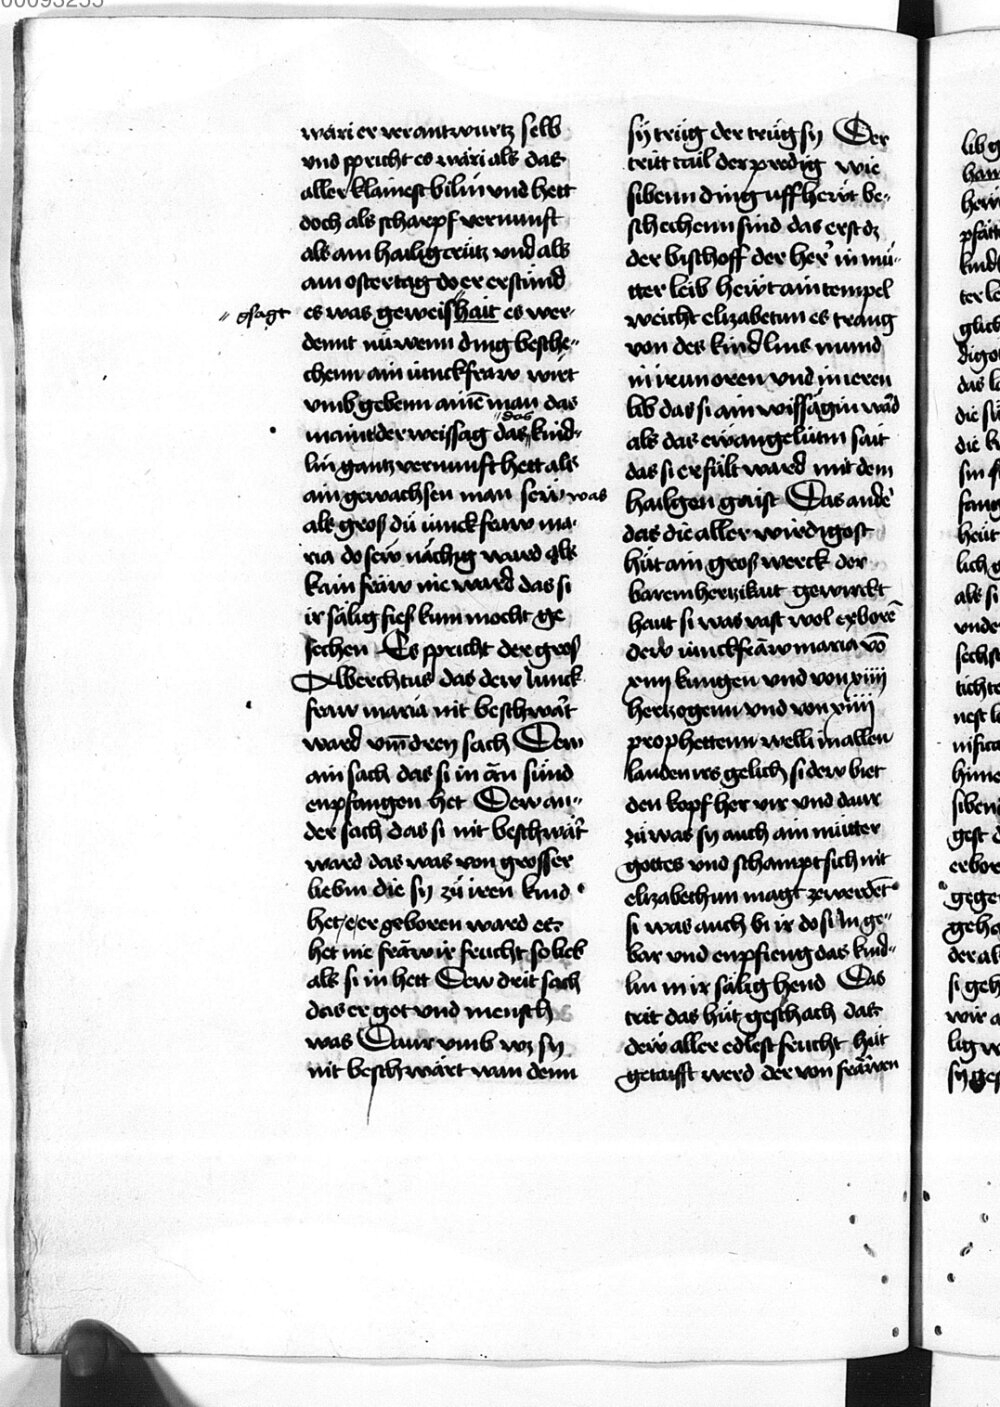 00093255
wäri er verantwurtz selb
vnd spricht es wäri als das
aller klainest bilin vnd hett
doch als scharpf vernunft
als am hailig crütz vnd als
am ostertag do er erstünd
gsagt
es was geweishait es wer-
dennt nüwenn ding besche-
chenn ain iunckfraw wirt
vmb gebenn ainē man das
maint der weissag das das kind-
lin gantz vernunft hett als
ain gewachsen man seiv was
als gros dü iunckfraw ma-
ria do seiv nächig ward als
kain fraw nie ward das si
ir sälig fies kum mocht ge
sechen Es spricht der gros
Alberchtus das dew Junck
fraw maria nit beschwärt
ward vm̄ drey sach Dew
ain sach das si in ān sünd
enpfangen het Dew an-
der sach das si nit beschwärt
ward das was von grosser
liebin die sy zü iren kind
het e er geboren ward es
het nie fraw ir frucht so lieb
als si in hett Dew drit sach
das er got vnd mensch
was Daur vmb wz sy
nit beschwärt wan denn
sy trüg der trüg sy Der
tritt tail der predig wie
sibenn ding uff heüt be-
schechenn sind das erst dz
der bischoff der her in mü-
tter leib heẅt ain tempel
weicht elizabetun es trang
von des kindlins mund
in ir un oren vnd in ieren
lib das si ain wissägin ward
als das ewangelium sait
das si erfült ward mit dem
hailgen gaist Das ander
das die aller wirdigost
hüt ain gros werck der
baremhertzikait gewirckt
haut si was vast wol erboren
dew iunckfraw maria vō
xiiii küngen vnd von xiiii
hertzogenn vnd von xiiii
prophettenn welli in allen
landen irs gelich si dew biet
den kopf her vir vnd daur
zü was sy auch ain mütter
gottes vnd schampt sich nit
elizabethun magt ze werdet
si was auch bi ir do si In ge-
bar vnd enpfieng das kind-
lin in ir sälig hend Das
trit das hüt geschach das
dew aller edlest frucht hüt
getaifft werd der von frawen